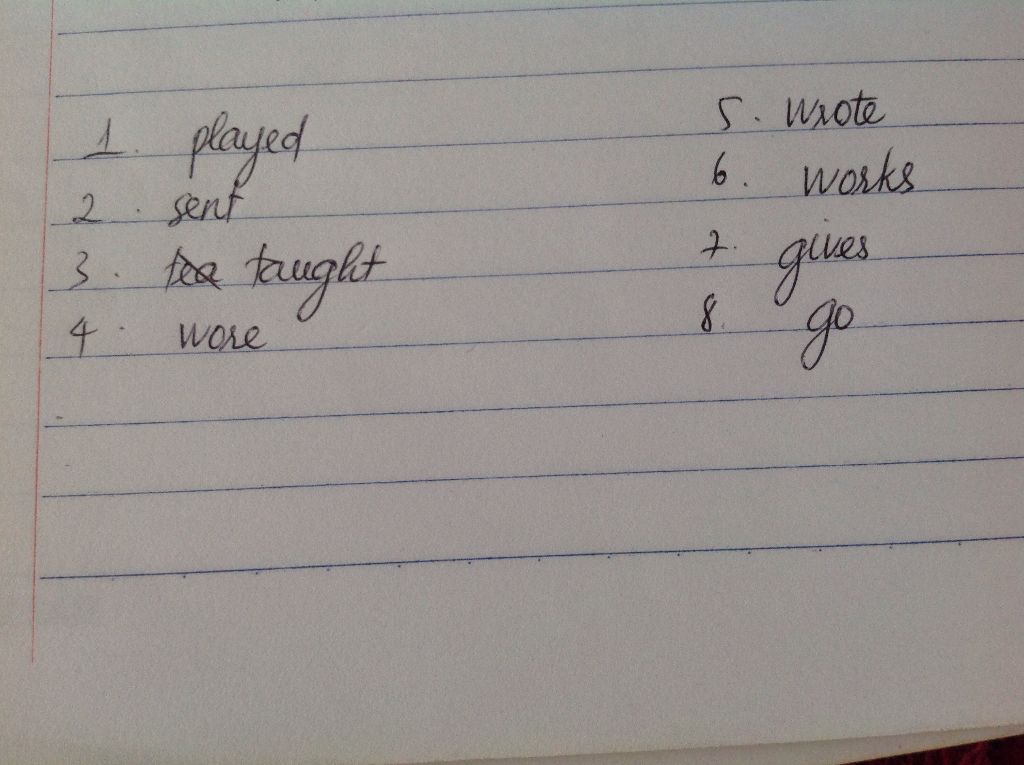 1. played
2. sent
3. taught
4. wore
5. wrote
6. works
7. gives
8. go